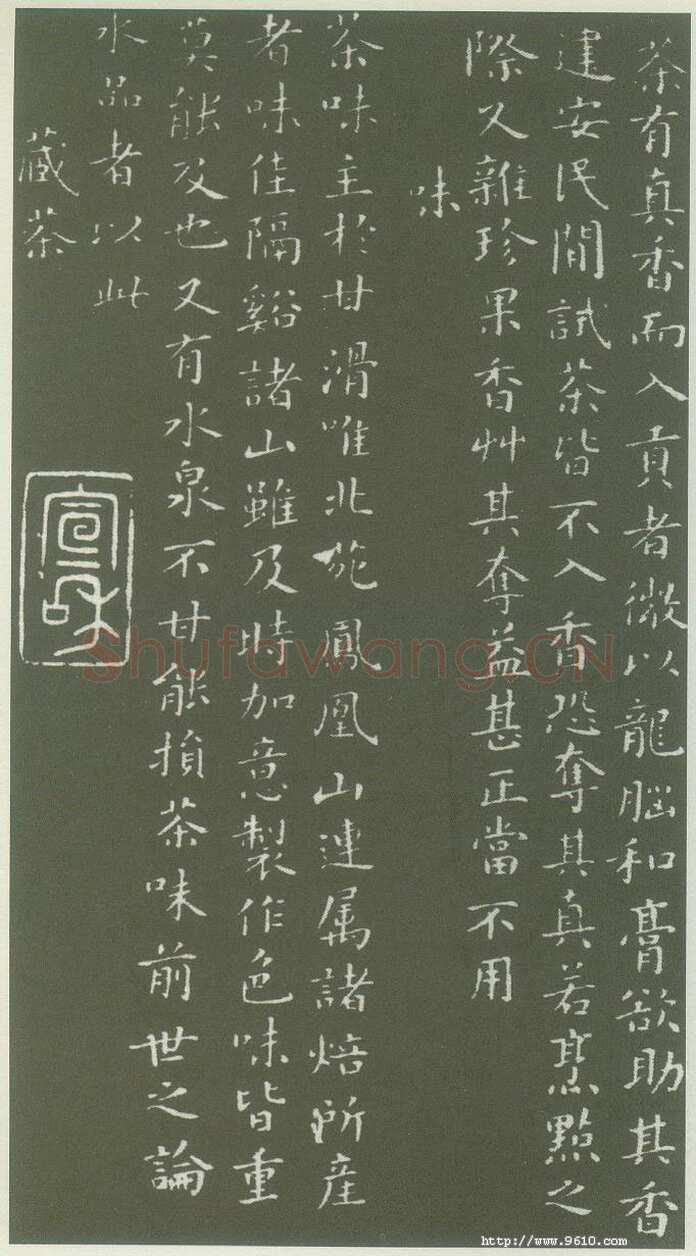 茶有真香而入貢者微以龍腦和膏欲助其香
建安民間試茶皆不入香恐奪其真若烹點之
際又雜珍果香艸其奪益甚正當不用
味
茶味主於甘滑唯北苑鳳凰山連属諸焙所産
者味佳隔谿諸山雖及時加意製作色味皆重
莫能及也又有水泉不甘能損茶味前世之論
水品者以此
藏茶
Shufawang.CN
http://www.9610.com